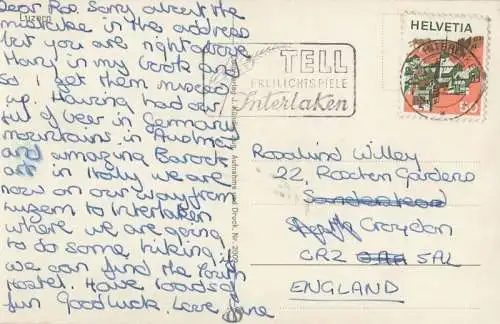 Dear Roz. Sorry about the
mistake in the address
Luzern
but you are right above
Mary in my book and
so I get them muxed
up. Having had our
full of beer in Germany
mountains in Austria
and amazing Barock
art in Italy we are
now on our way from
Luzern to Interlaken
where we are going
to do some hiking if
we can find the Youth
Hostel. Have loads of
fun Good luck. Love Jane
Aufnahme und Druck, Nr.
TELL
FREILICHTSPIELE
Interlaken
HELVETIA
Rosalind Willey
22, Rochen Gardens
Sanderstead
Croydon
CR2 5AL
ENGLAND